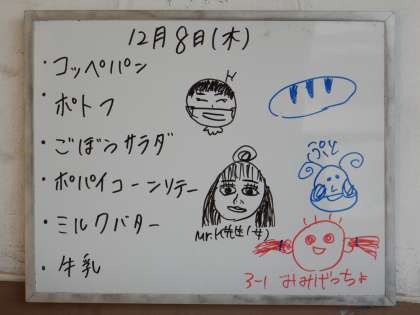 12月8日(木)
・コッペパン
・ポトフ
・ごぼうサラダ
・ポパイコーンソテー
・ミルクバター
・牛乳
ぷく
3-1 おみげっちょ